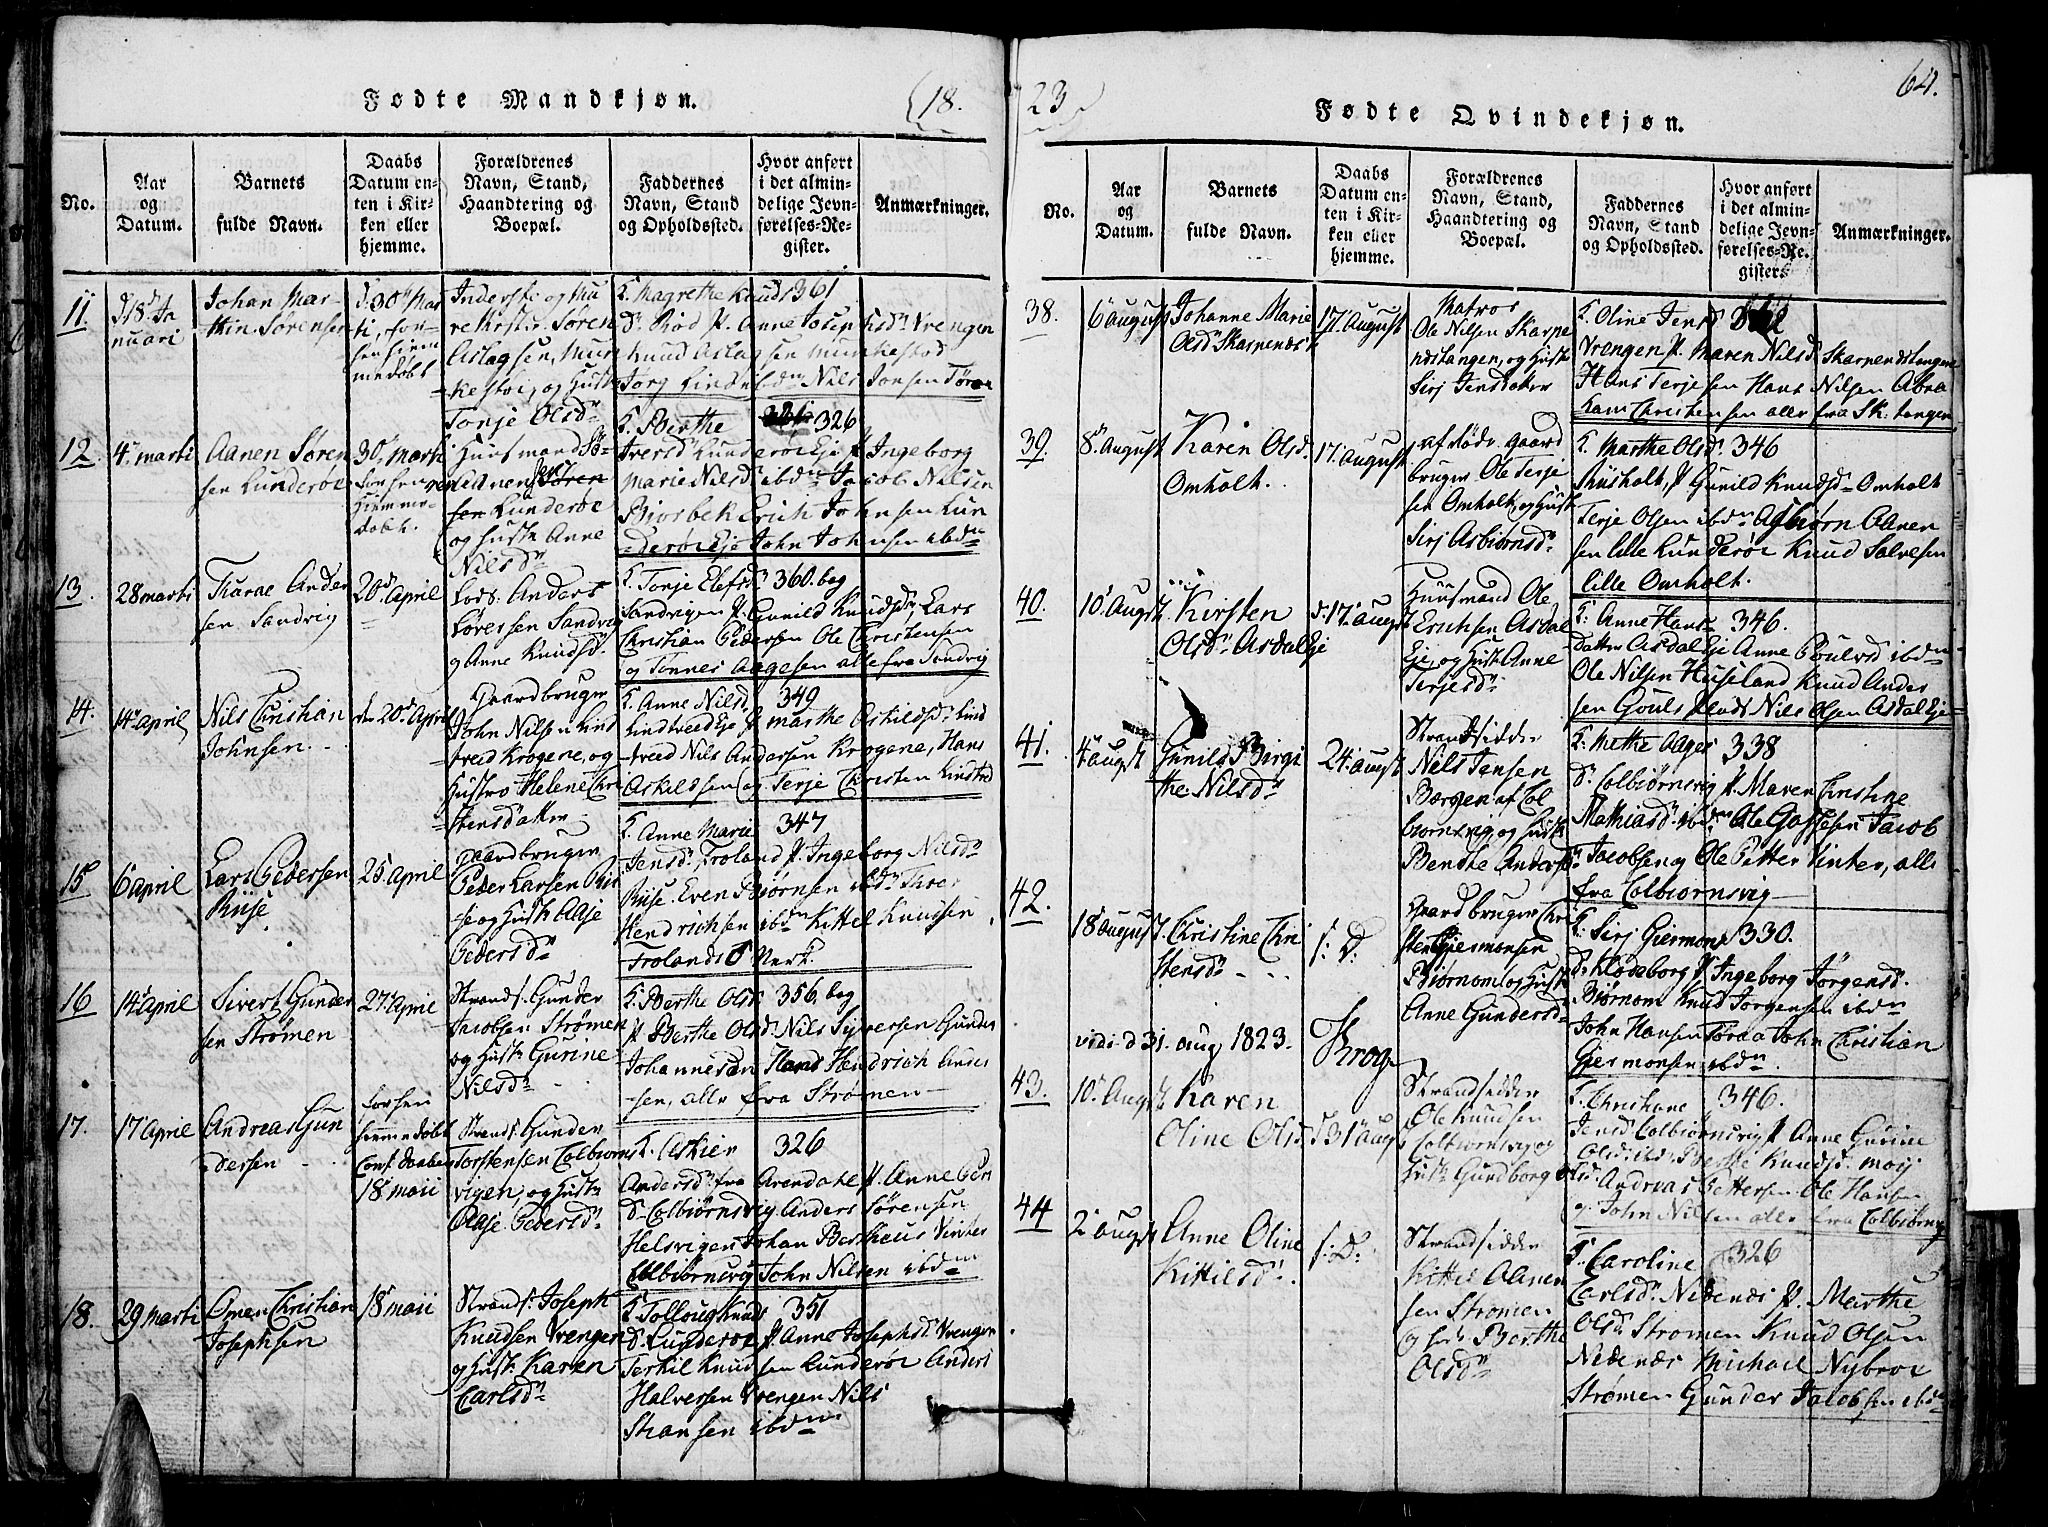 Fødte Mandkjøn.
18.
No.
Aar
og
Datum.
Barnets
fulde Navn.
Daabs
Datum en-
ten i Kir-
ken eller
hjemme.
Forældrenes
Navn, Stand,
Haandtering og
Boepæl.
Faddernes
Navn, Stand
og Opholdssted.
Hvor anført
i det almin-
delige Jevn-
førelses-Re-
gister.
Anmærkninger.
11
d 18d Ja
nuari
Johan Mar-
thin Sørensen
d: 30te Mar
ti, for-
hen hiem
medøbt
Søren
Aslagsen, Mur
og Hustr
Tonje Olsdr
F. Magrethe Knuds 361
dr Rød p. Anne Josephsdr Vrengen
Knud Aslagsen
Nils Jonsen Tøraa
12
4r marti
Aanen Søren
sen Lunderøe
30te Marti
forhen
Hiemme-
døbt.
Huusmand Sø-
ren Aanensen
Lunderøe
og Hustr Anne
Nilsdr
F. Berthe 326
Iversdr Lunderøe Eje p Ingeborg
Marie Nilsdr ibdm Jacob Nilsen
Biorbek Erich Johnsen Lun
derøe Eje John Johnsen ibdm
13.
28 marti
Tharae Ander
sen Sandvig
20d April
Lods: Anders
Loressen Sandvig
og Anne Knudsdr
F. Tonje Elefsdr 360. beg
Sandvigen p. Gunild Knudsdr, Lars
Christian Pedersen Ole Christensen
og Tønnes Aagesen alle fra Sandvig
14.
14 april
Nils Christian
Johnsen.
den 20d April
Gaardbruger
John Nilsen Lind
tveed Krogene, og
Hustro Helene Chri
stensdatter
F. Anne Nilsd. 349
Lindtveed Eje p marthe Askildsd: Lind
tveed Nils Andersen Krogene, Hans
Askildsen og Terje Christen Lindtved
15
6 april
Lars Pedersen
Riise
25 april
Gaardbruger
Peder Larsen Rii
se og Hustr Aaje
Pedersdr
F. Anne Marie 347
Jensdr, Froland p. Ingeborg Nilsdr
Riise. Even Biørnsen ibdm Thoer
Hendrichsen ibdm Kittel Knudsen
Frolands Verk.
16
14 april
Sivert Gunder
sen Strømen
27d April
Strands. Gunder
Jacobsen Strømen
og Hustr Gurine
Nilsdr
F. Berthe Olsd. 356. beg
p Berthe Olsd. Nils Syversen Gunder
Johannesen Hans Hendrich Ander
sen, alle fra Strømen
17.
17 April
Andreas Gun
dersen
forhen
hiemmedøbt
Conf. daaben
18d maii
Strands. Gunder
Torstensen Colbiorns
vigen, og Hustr
Aaje Pedersdr
F. Askier 326
Andersdr fra Arendal p. Anne Peri
dr Colbiørnsvig Anders Sørensen
Helsvigen Johan Bertheus Vinter
Colbiornsvig John Nilsen ibdm
18.
29 marti
Omen Christian
Josephsen
18d maii
Strands. Joseph
Knudsen Vrengen
og Hustr Karen
Carlsdr
F. Tollaug Knuds 351
dr Lunderøe p. Anne Josephsdr Vrengen
Terkil Knudsen Lunderøe Anders
Halversen Vrengen Nils
Stiansen ibdm
23
64.
Fødte Qvindekjøn.
No.
Aar
og
Datum.
Barnets
fulde Navn.
Daabs
Datum en-
ten i Kir-
ken eller
hjemme.
Forældrenes
Navn, Stand,
Haandtering og
Boepæl.
Faddernes
Navn, Stand
og Opholdssted.
Hvor anført
i det almin-
delige Jevn-
førelses-Re-
gister.
Anmærkninger.
38.
6 august
Johanne Marie
Olsdr Skarpenæs
17. August
Matros
Ole Nilsen Skarpe
næstangen, og Hustr
Sirj Jensdatter
F. Oline Jensd
Vrengen p. Maren Nilsd. Skarpenæstangen
Hans Terjesen Hans Nilsen Abra
ham Christensen alle fra Sk: tangen
39.
8. August
Karen Olsd.
Omholt.
17. August
gaard
bruger Ole Terje
sen Omholt, og Hustr
Sirj Asbiørnsdr
F. Marthe Olsdr 346
Riisholt, p Gunild Knudsdr Omholt
Terje Olsen ibdm Asbiørn Aanen
sen lille Lunderøe Knud Salvesen
lille Omholt.
40.
10. Augst
Kirsten
Olsdr Asdal Eje
d: 17. augst
Huusmand Ole
Erichsen Asdal
Eje, og Hustr Anne
Terjesdr
F. Anne Hans 346.
datter Asdal Eje Anne Poulsd ibdm
Ole Nilsen Huseland Knud Ander
sen Nils Olsen Asdal Eje
41.
4 augst
Gunild Birgi
the Nilsdr
24. augst
Strandsidder
Nils Jensen
Børgen af Col
biornsvig og Hustr
Bendte Andersdr
F. Methe Aages 338
dr Colbiørnsvig p. Maren Christine
Mathiasdr ibdm. Ole Jacob
Jacobsen og Ole Petter Vinter, alle
fra Colbiornsvig
42.
18 august.
Christine Chri
stensdr
s: D:
Gaardbruger Chri
sten Giermonsen
Biørnom og Hustr
Anne Gundersdr
F. Sirj Giermons 330.
dr Kløveborg p Ingeborg Jørgensd.
Biørnom Knud Jørgensen ibdm
John Hansen Tøraa John Christian
Giermonsen ibdm.
vidi d 31. aug 1823.
Krog
43.
10. Augst
Karen
Oline Olsd
d 31. Aug
Strandsidder
Ole Knudsen
Colbiornsvig og
Hustr Gundborg
F. Christiane 346.
Jensd Colbiørnsvig p Anne Gurine
Olsd ibd. Berthe Knudsd.
Andreas Pettersen Ole Hansen
og John Nilsen alle fra Colbiornsvig
44
2 augst
Anne Oline
Kittilsd.
s: D:
Strandsidder
Kittel Aanen
sen Strømen
og Berthe
Olsdr
F. Caroline 326
Carlsd. Nedenæs p. Marthe
Olsdr Strømen Knud Olsen
Nedenæs Michael Nybroe
Strømen Gunder Jacobsen ibdm